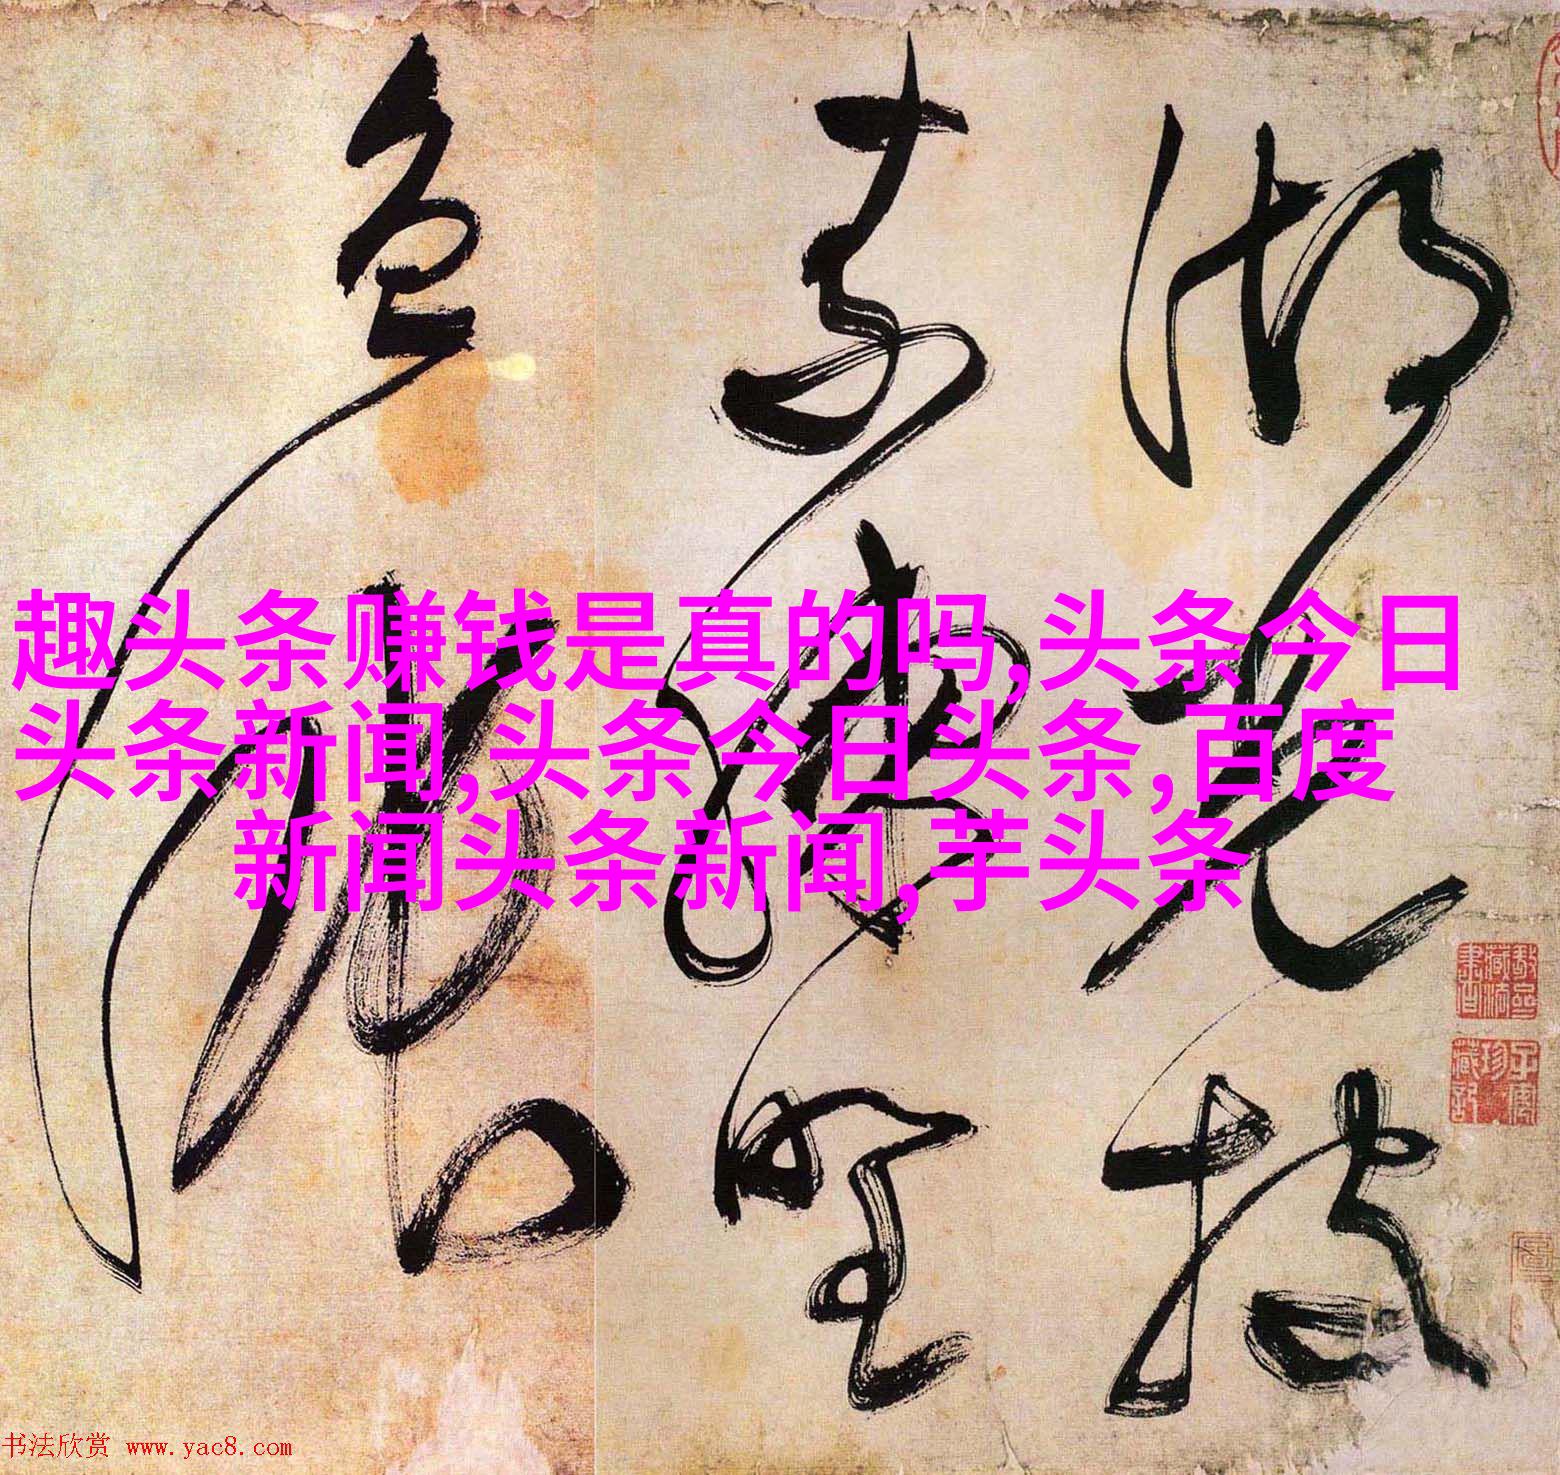 湖光披
素練野
色
趣头条赚钱是真的吗,头条今日
头条新闻,头条今日头条,百度
新闻头条新闻,芋头条
书法欣赏 www.yac8.com